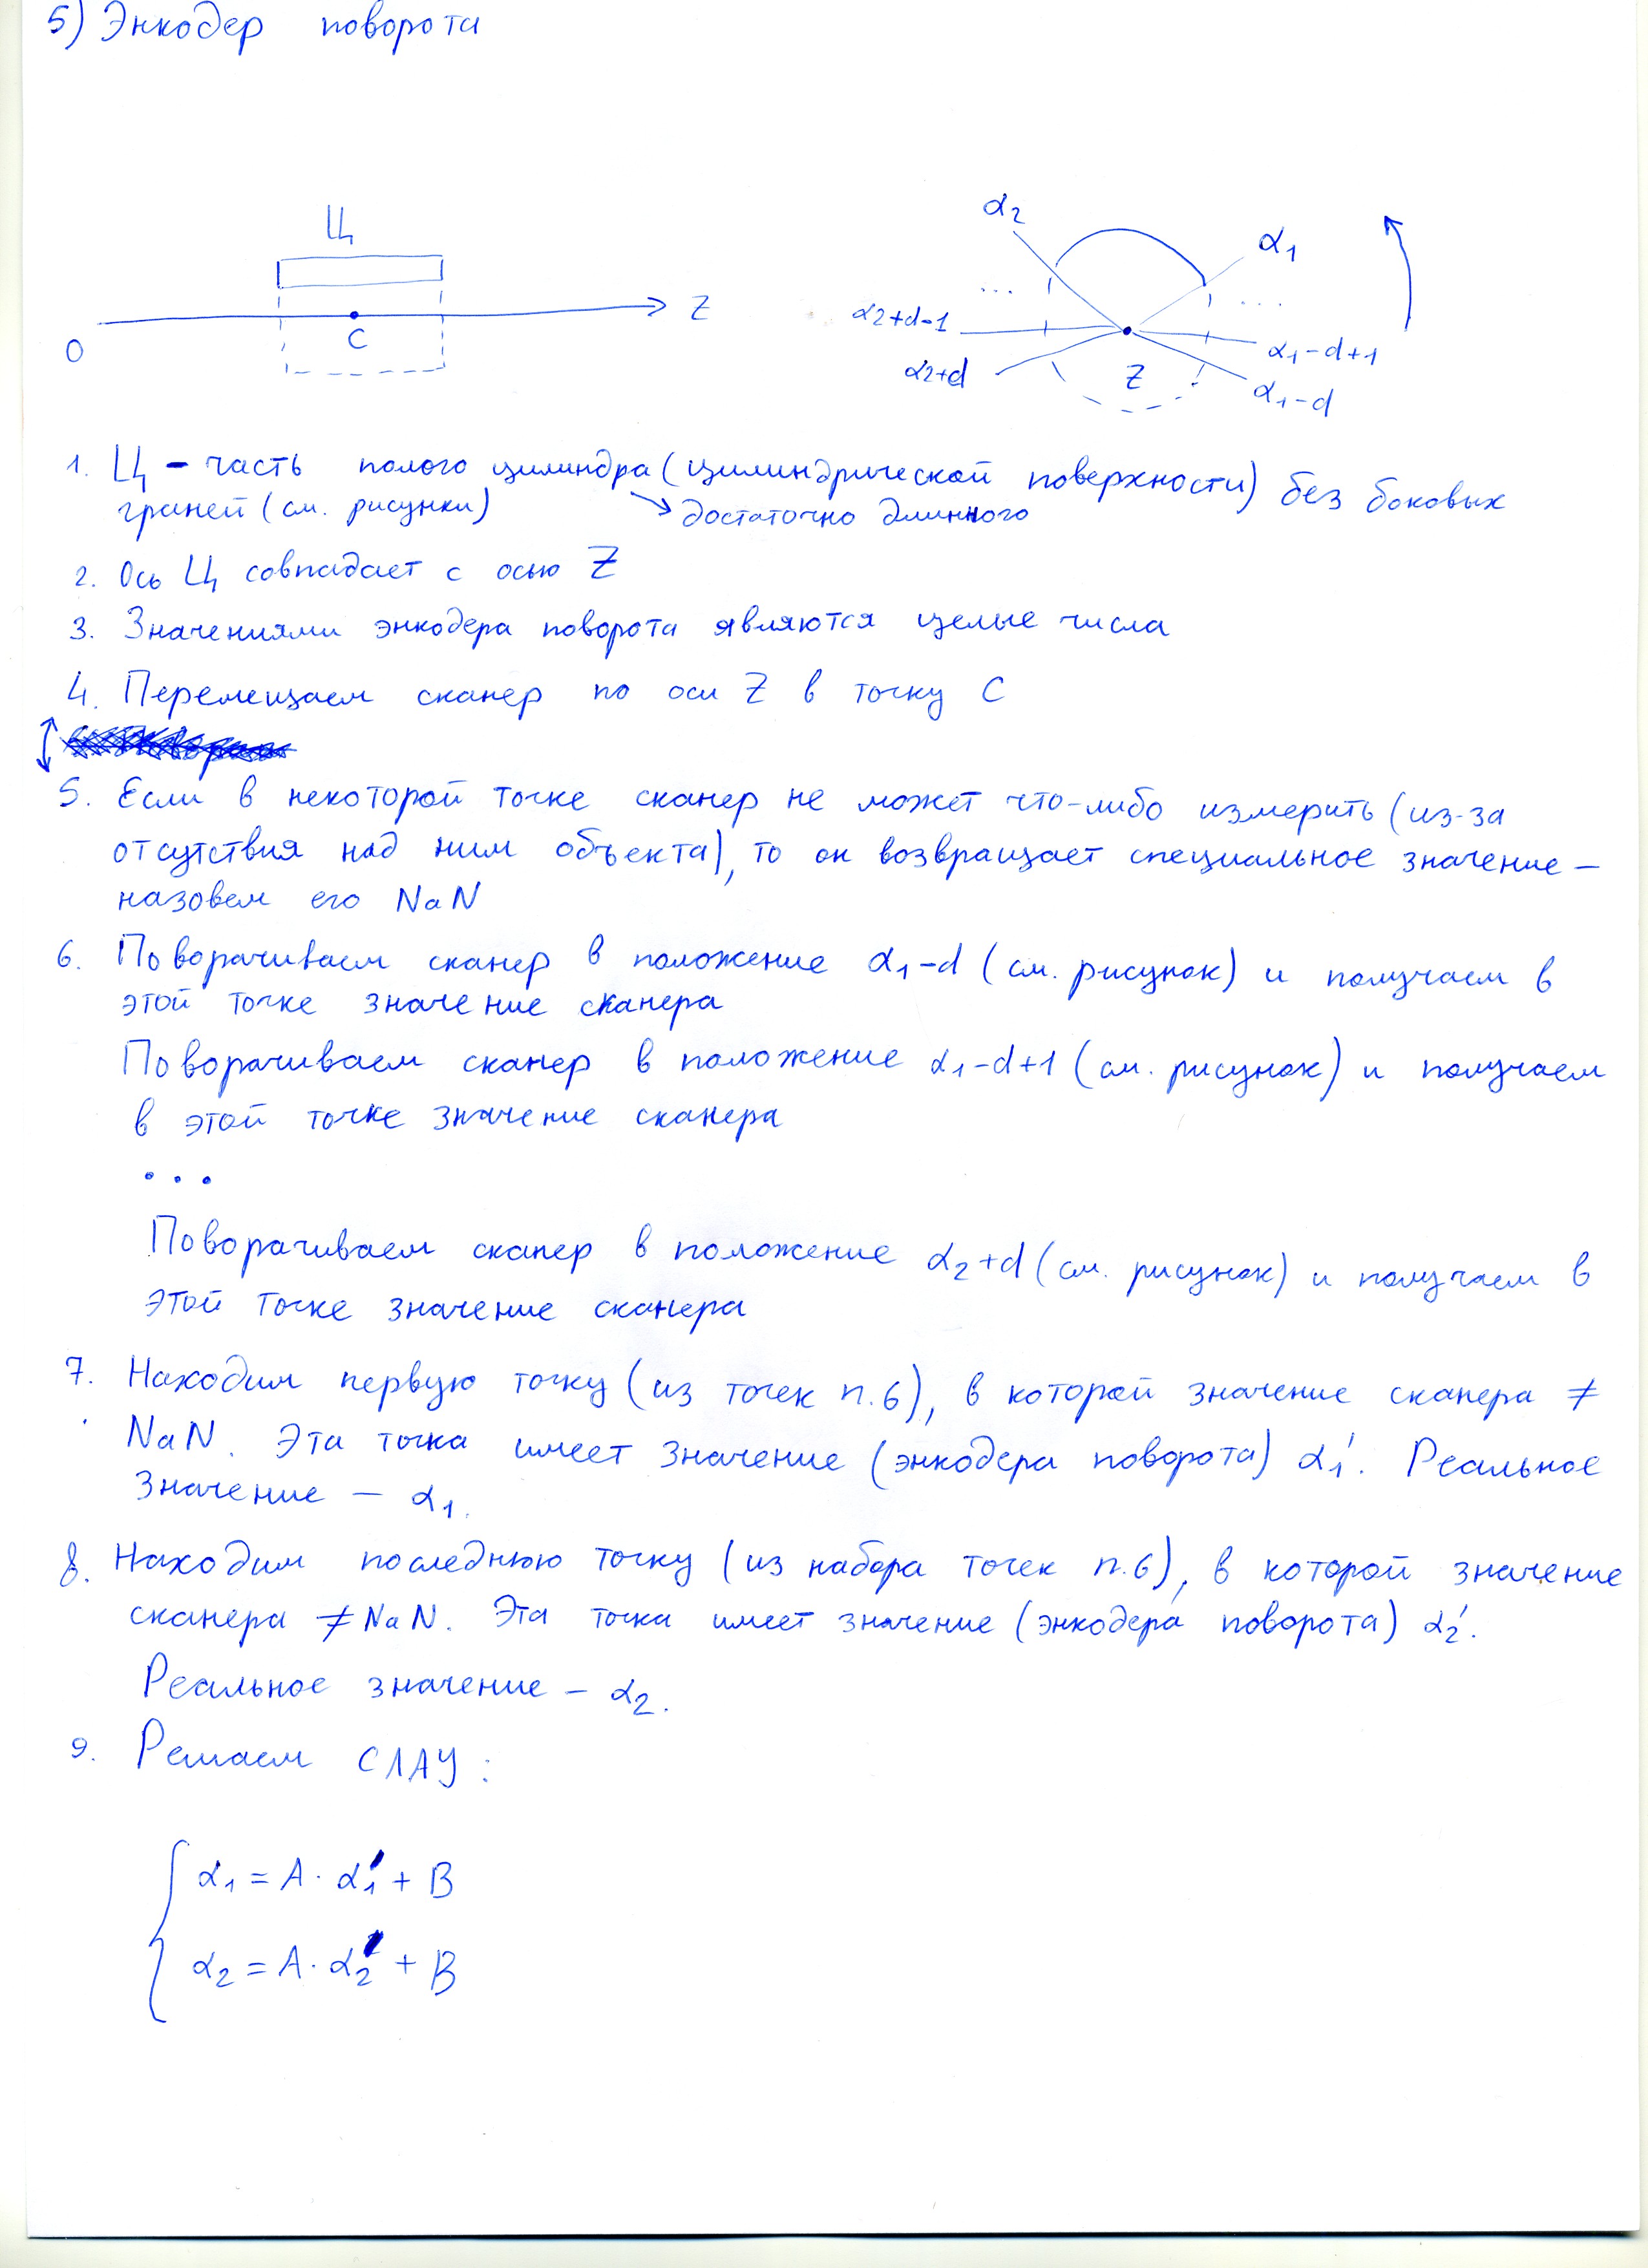 5) Энкодер поворота
Ц
O
C
Z
α₂
α₁
...
...
α₂+d-1
α₂+d
Z
α₁-d+1
α₁-d
1. Ц - часть полого цилиндра (цилиндрической поверхности) без боковых
граней (см. рисунки)
достаточно длинного
2. Ось Ц совпадает с осью Z
3. Значениями энкодера поворота являются целые числа
4. Перемещаем сканер по оси Z в точку C
5. Если в некоторой точке сканер не может что-либо измерить (из-за
отсутствия над ним объекта), то он возвращает специальное значение –
назовем его NaN
6. Поворачиваем сканер в положение α₁-d (см. рисунок) и получаем в
этой точке значение сканера
Поворачиваем сканер в положение α₁-d+1 (см. рисунок) и получаем
в этой точке значение сканера
...
Поворачиваем сканер в положение α₂+d (см. рисунок) и получаем в
этой точке значение сканера
7. Находим первую точку (из точек п.6), в которой значение сканера ≠
NaN. Эта точка имеет значение (энкодера поворота) α₁'. Реальное
значение – α₁.
8. Находим последнюю точку (из набора точек п.6), в которой значение
сканера ≠ NaN. Эта точка имеет значение (энкодера поворота) α₂'.
Реальное значение – α₂.
9. Решаем СЛАУ:
α₁ = A · α₁' + B
α₂ = A · α₂' + B